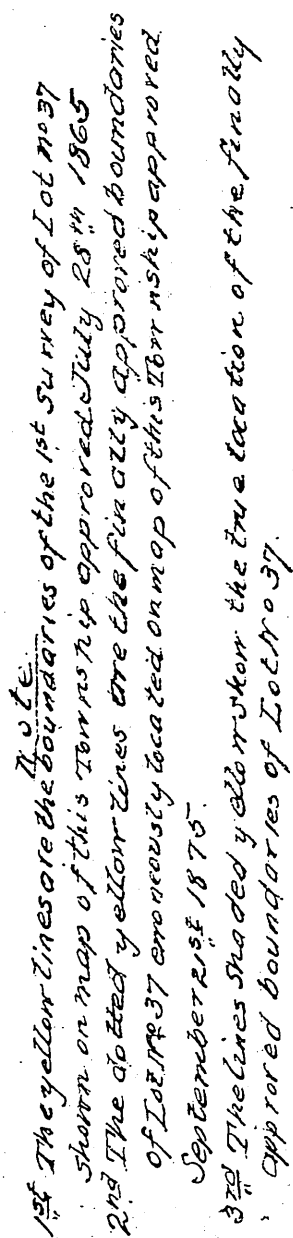 Note.
1st The yellow lines are the boundaries of the 1st survey of Lot No 37
shown on map of this Township approved July 28th 1865
2nd The dotted yellow lines are the finally approved boundaries
of Lot No 37 erroneously located on map of this Township approved
September 21st 1875.
3rd The lines shaded yellow show the true location of the finally
approved boundaries of Lot No 37.